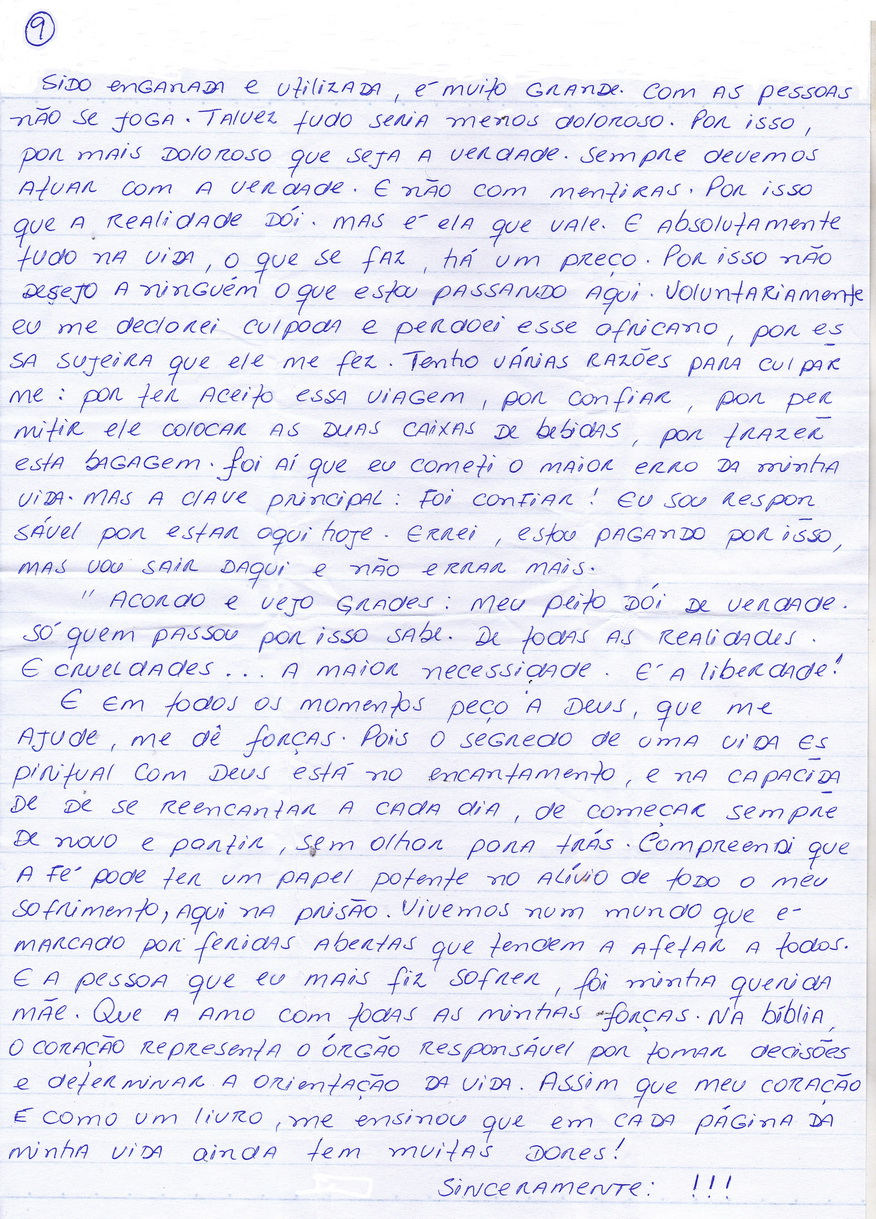 9
SIDO ENGANADA E UTILIZADA, É MUITO GRANDE. COM AS PESSOAS
NÃO SE JOGA. TALVEZ TUDO SERIA MENOS DOLOROSO. POR ISSO,
POR MAIS DOLOROSO QUE SEJA A VERDADE. SEMPRE DEVEMOS
ATUAR COM A VERDADE. E NÃO COM MENTIRAS. POR ISSO
QUE A REALIDADE DÓI. MAS É ELA QUE VALE. E ABSOLUTAMENTE
TUDO NA VIDA, O QUE SE FAZ, HÁ UM PREÇO. POR ISSO NÃO
DESEJO A NINGUÉM O QUE ESTOU PASSANDO AQUI. VOLUNTARIAMENTE
EU ME DECLOREI CULPODA E PERDOEI ESSE AFRICANO, POR ES
SA SUJEIRA QUE ELE ME FEZ. TENHO VÁRIAS RAZÕES PARA CULPAR
ME: POR TER ACEITO ESSA VIAGEM, POR CONFIAR, POR PER
MITIR ELE COLOCAR AS DUAS CAIXAS DE BEBIDAS, POR TRAZER
ESTA BAGAGEM. FOI AÍ QUE EU COMETI O MAIOR ERRO DA MINHA
VIDA. MAS A CLAVE PRINCIPAL: FOI CONFIAR! EU SOU RESPON
SÁVEL POR ESTAR AQUI HOJE. ERREI, ESTOU PAGANDO POR ISSO,
MAS VOU SAIR DAQUI E NÃO ERRAR MAIS.
" ACORDO E VEJO GRADES: MEU PEITO DÓI DE VERDADE.
SÓ QUEM PASSOU POR ISSO SABE. DE TODAS AS REALIDADES.
E CRUELDADES... A MAIOR NECESSIDADE. É A LIBERDADE!
E EM TODOS OS MOMENTOS PEÇO A DEUS, QUE ME
AJUDE, ME DÊ FORÇAS. POIS O SEGREDO DE UMA VIDA ES
PIRITUAL COM DEUS ESTÁ NO ENCANTAMENTO, E NA CAPACIDA
DE DE SE REENCANTAR A CADA DIA, DE COMEÇAR SEMPRE
DE NOVO E PARTIR, SEM OLHAR PARA TRÁS. COMPREENDI QUE
A FÉ PODE TER UM PAPEL POTENTE NO ALÍVIO DE TODO O MEU
SOFRIMENTO, AQUI NA PRISÃO. VIVEMOS NUM MUNDO QUE É
MARCADO POR FERIDAS ABERTAS QUE TENDEM A AFETAR A TODOS.
E A PESSOA QUE EU MAIS FIZ SOFRER, FOI MINHA QUERIDA
MÃE. QUE A AMO COM TODAS AS MINHAS FORÇAS. NA BÍBLIA,
O CORAÇÃO REPRESENTA O ÓRGÃO RESPONSÁVEL POR TOMAR DECISÕES
E DETERMINAR A ORIENTAÇÃO DA VIDA. ASSIM QUE MEU CORAÇÃO
E COMO UM LIVRO, ME ENSINOU QUE EM CADA PÁGINA DA
MINHA VIDA AINDA TEM MUITAS DORES!
SINCERAMENTE: !!!